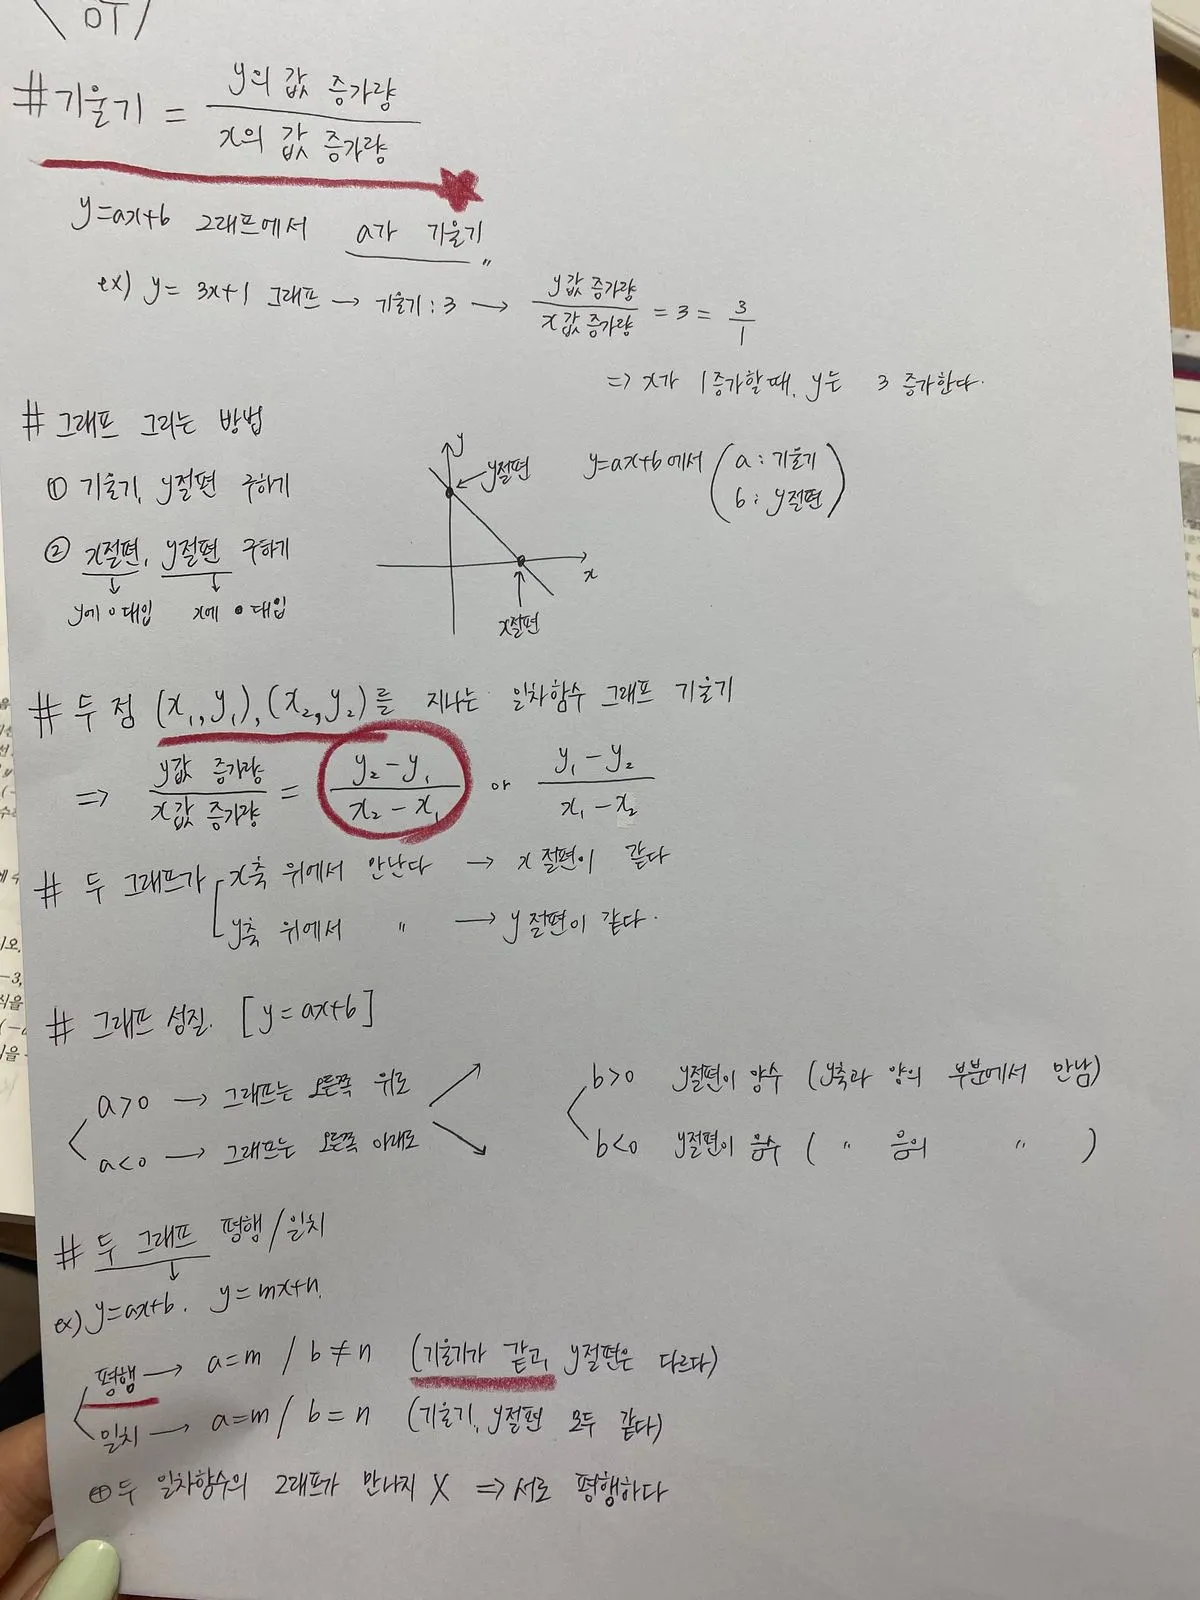 OT
#기울기 = y의 값 증가량 / x의 값 증가량
y=ax+b 그래프에서 a가 기울기〃
ex) y= 3x+1 그래프 → 기울기 : 3 → y값 증가량 / x값 증가량 = 3 = 3/1
=> x가 1증가할때, y는 3 증가한다.
# 그래프 그리는 방법
① 기울기, y절편 구하기
② x절편, y절편 구하기
↓ ↓
y에 0대입 x에 0 대입
y
y절편
x
x절편
y=ax+b에서 (a : 기울기
b : y절편)
# 두 점 (x₁,y₁), (x₂,y₂)를 지나는 일차함수 그래프 기울기
=> y값 증가량 / x값 증가량 = y₂-y₁ / x₂-x₁ or y₁-y₂ / x₁-x₂
# 두 그래프가 x축 위에서 만난다 → x절편이 같다
y축 위에서 〃 → y절편이 같다.
# 그래프 성질. [y=ax+b]
a>0 → 그래프는 오른쪽 위로
a<0 → 그래프는 오른쪽 아래로
b>0 y절편이 양수 (y축과 양의 부분에서 만남)
b<0 y절편이 음수 ( 〃 음의 〃 )
# 두 그래프 평행/일치
↓
ex) y=ax+b. y=mx+n.
평행 → a=m / b≠n (기울기가 같고, y절편은 다르다)
일치 → a=m / b=n (기울기, y절편 모두 같다)
⊕ 두 일차함수의 그래프가 만나지 X => 서로 평행하다